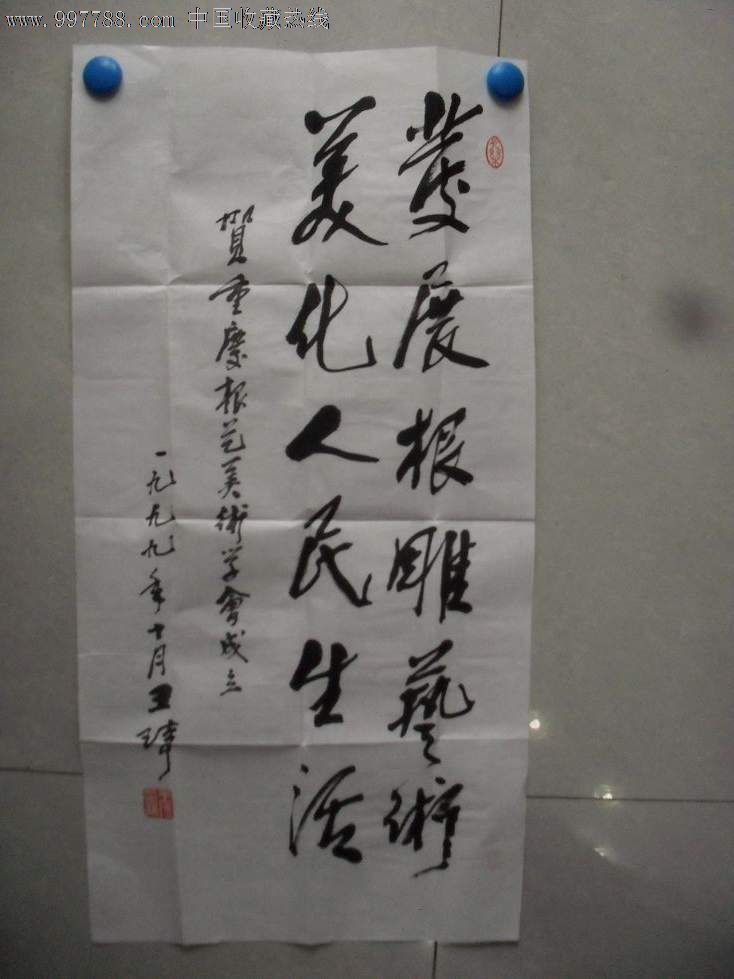 www.997788.com 中国收藏热线
發展根雕藝術
美化人民生活
賀重慶根艺美術学會成立
一九九九年十月王瑋